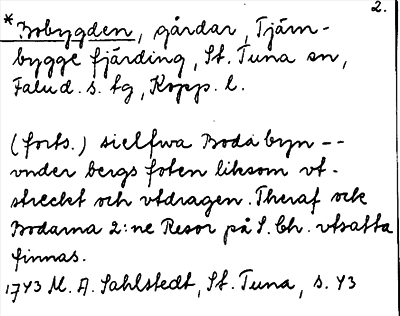 2.
*Bobygden, gårdar, Tjärn-
bygge fjärding, St. Tuna sn,
Falu d. s. tg, Kopp. l.
(forts.) sielfwa Boda byn --
vnder bergs foten liksom vt-
streckt och vtdragen. Theraf ock
Bodarna 2:ne Resor på S. Ch. vtsatta
finnas.
1743 M. A. Sahlstedt, St. Tuna, s. 43